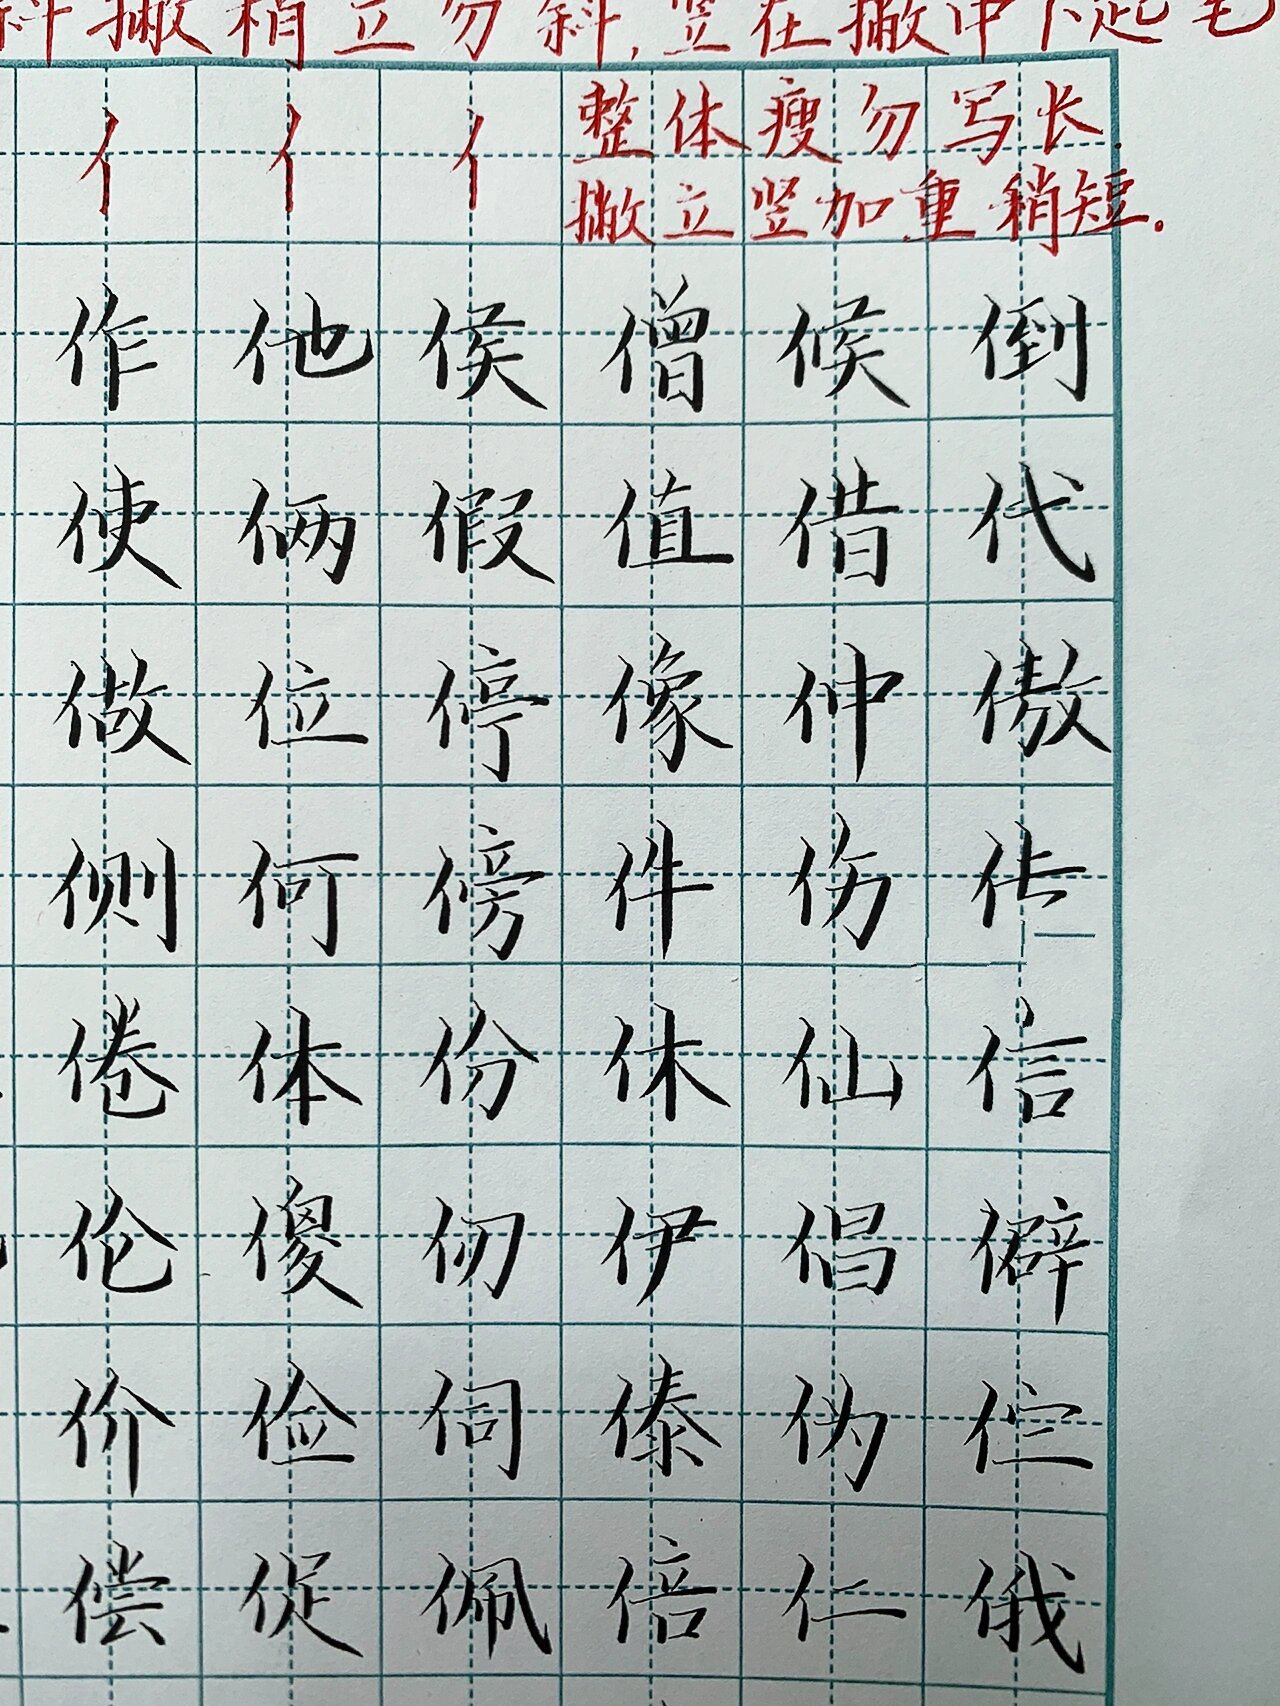 斜撇稍立勿斜,竖在撇中下起笔
亻亻亻整体瘦勿写长.
撇立竖加重稍短.
作他侯僧候倒
使俩假值借代
做位停像仲傲
侧何傍件伤
倦体份休仙信
伦傻仞伊倡僻
价俭伺傣伪
偿促佩倍仁俄